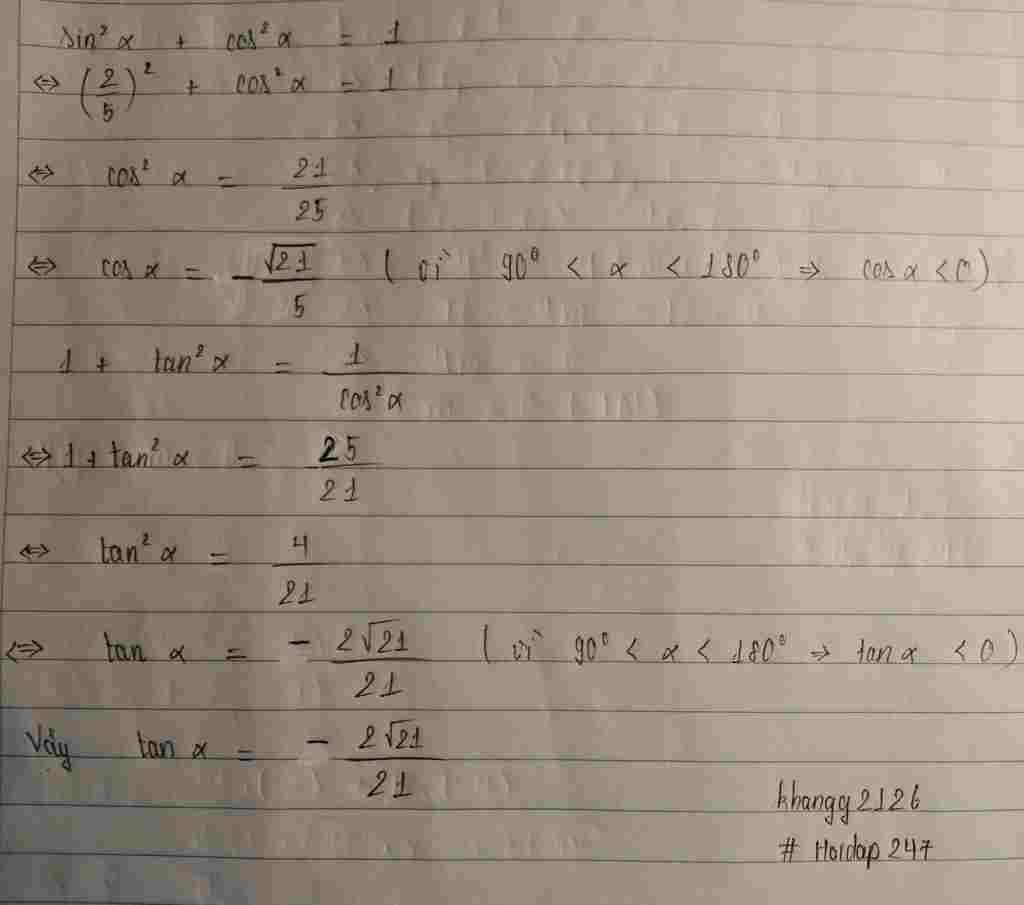 sin²α + cos²α = 1
⇔ (2/5)² + cos²α = 1
⇔ cos²α = 21/25
⇔ cosα = -√21/5 (vì 90° < α < 180° ⇒ cosα < 0)
1 + tan²α = 1/cos²α
⇔ 1 + tan²α = 25/21
⇔ tan²α = 4/21
⇔ tan α = - 2√21/21 (vì 90° < α < 180° ⇒ tanα < 0)
Vậy tan α = - 2√21/21
khangg2126
# Hoidap247